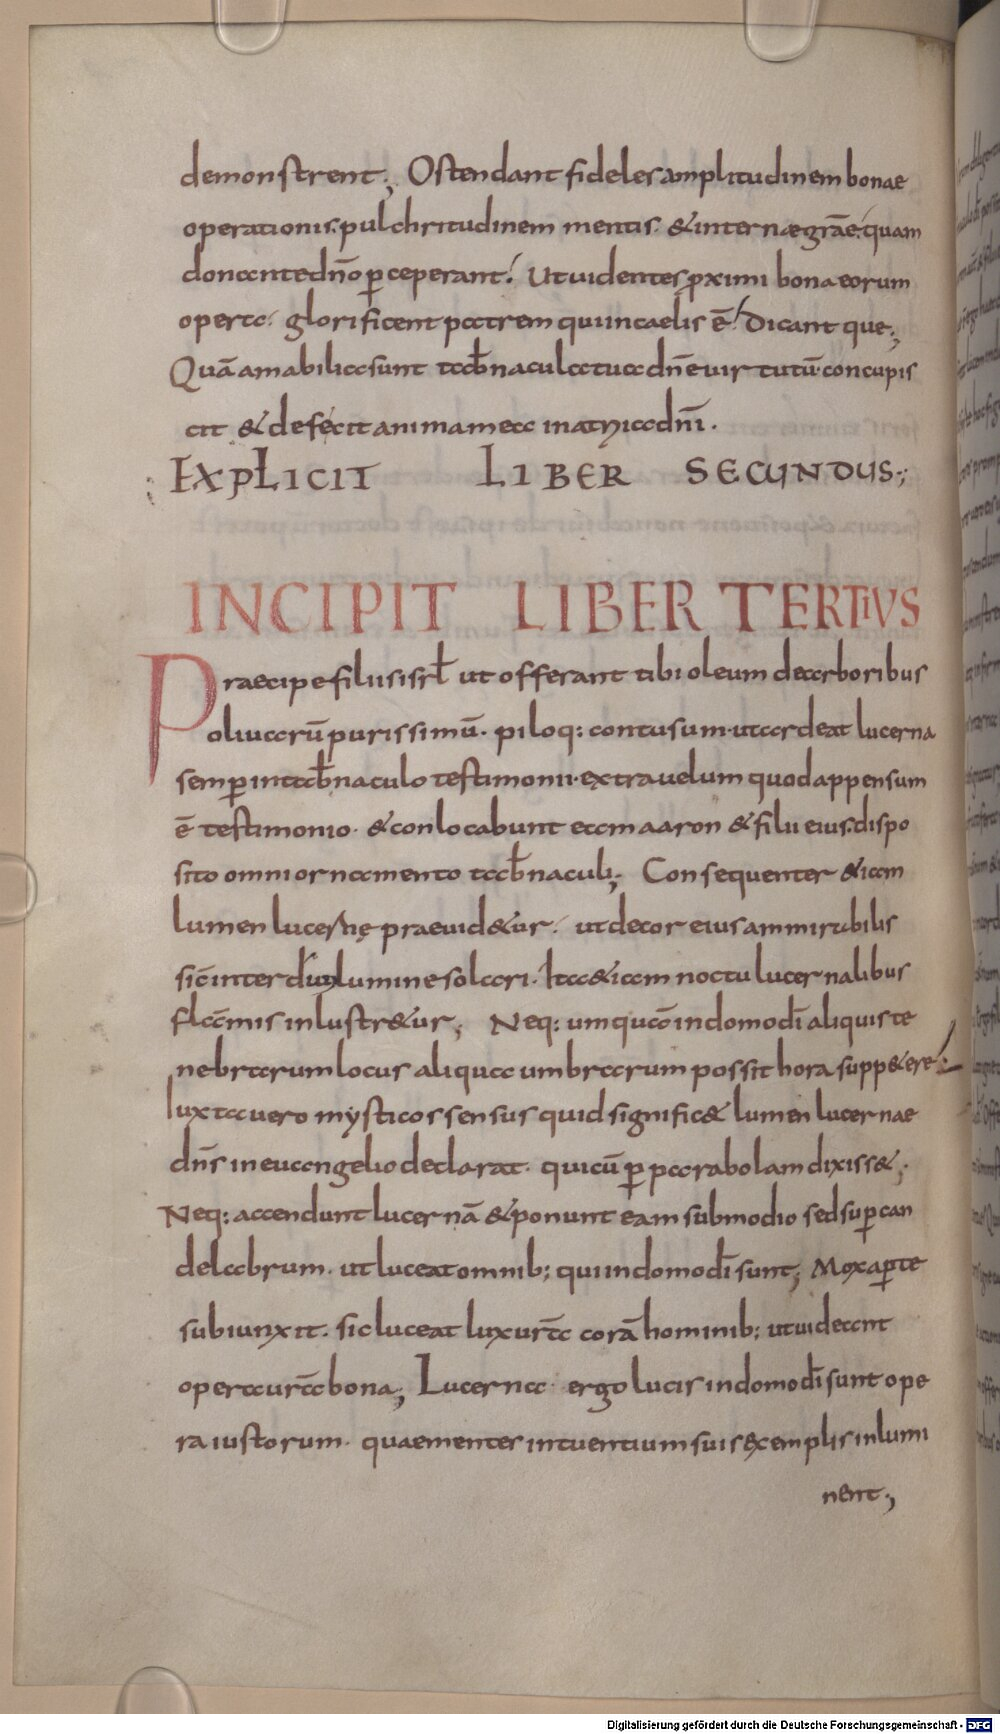 demonstrent; Ostendant fideles amplitudinem bonae
operationis. pulchritudinem mentis. & internæ grāe. quam
donante dn̄o ꝑceperant. Ut uidentes ꝓximi bona eorum
opera. glorificent patrem qui in caelis ē. Dicant que;
Quā amabilia sunt tab̄nacula tua dn̄e uirtutū. concupis
cit & defecit anima mea in atria dn̄i.
EXPLICIT LIBER SECUNDUS;
INCIPIT LIBER TERTIVS
Praecipe filiis isrł ut offerant tibi oleum de arboribus
oliuarū purissimū. piloq: contusum. ut ardeat lucerna
semꝑ in tab̄naculo testimonii. extra uelum quod appensum
ē testimonio. & conlocabunt eam aaron & filii eius. dispo
sito omni ornamento tab̄naculi; Consequenter &iam
lumen lucernę praeuid&ur. ut decor eius ammirabilis
sic̄ inter diuȝ lumine solari. Ita &iam noctu lucernalibus
flam̄mis inlustr&ur; Neq: umquā in domo dī aliquis te
nebrarum locus aliqua umbrarum possit hora supp&ere.
Iuxta uero mysticos sensus quid signific& lumen lucernae
dn̄s in euangelio declarat. qui cū ꝑ parabolam dixiss&;
Neq: accendunt lucernā & ponunt eam sub modio sed suꝑ can
delabrum. ut luceat omnib; qui in domo dī sunt; Mox aꝑte
subiunxit. sic luceat lux ur̄a corā hominib; ut uideant
opera ur̄a bona; Lucerna ergo lucis in domo dī sunt ope
ra iustorum. quae mentes intuentium suis exemplis inlumi
nent;
Digitalisierung gefördert durch die Deutsche Forschungsgemeinschaft - DFG